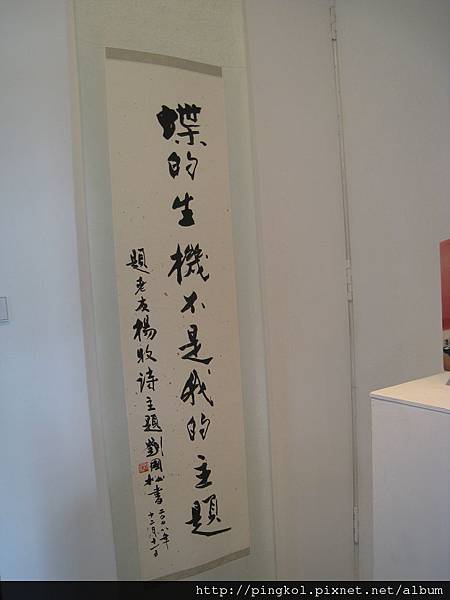 蝶的生機不是我的主題
題老友楊牧詩主題劉國松書
二〇〇八年
十二月十一日
http://pingkol.pixnet.net/album